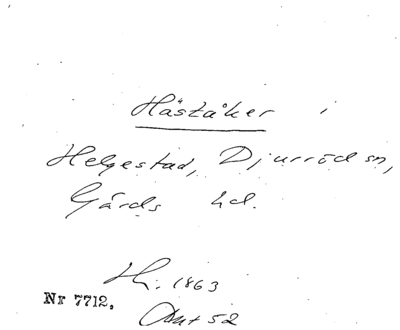 Häståker i
Helgestad, Djurröd sn,
Gärds hd.
Hi. 1863
Nr 7712.
Ant 52